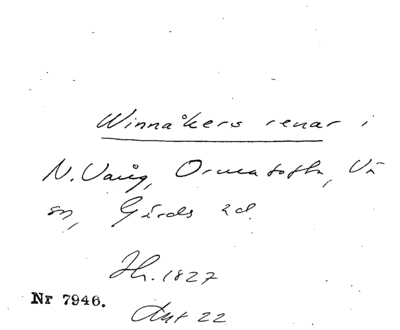 Winnåkers renar i
N. Vång, Ormatofta, Vå
sn, Gärds hd.
Jh. 1827
Nr 7946.
Akt 22